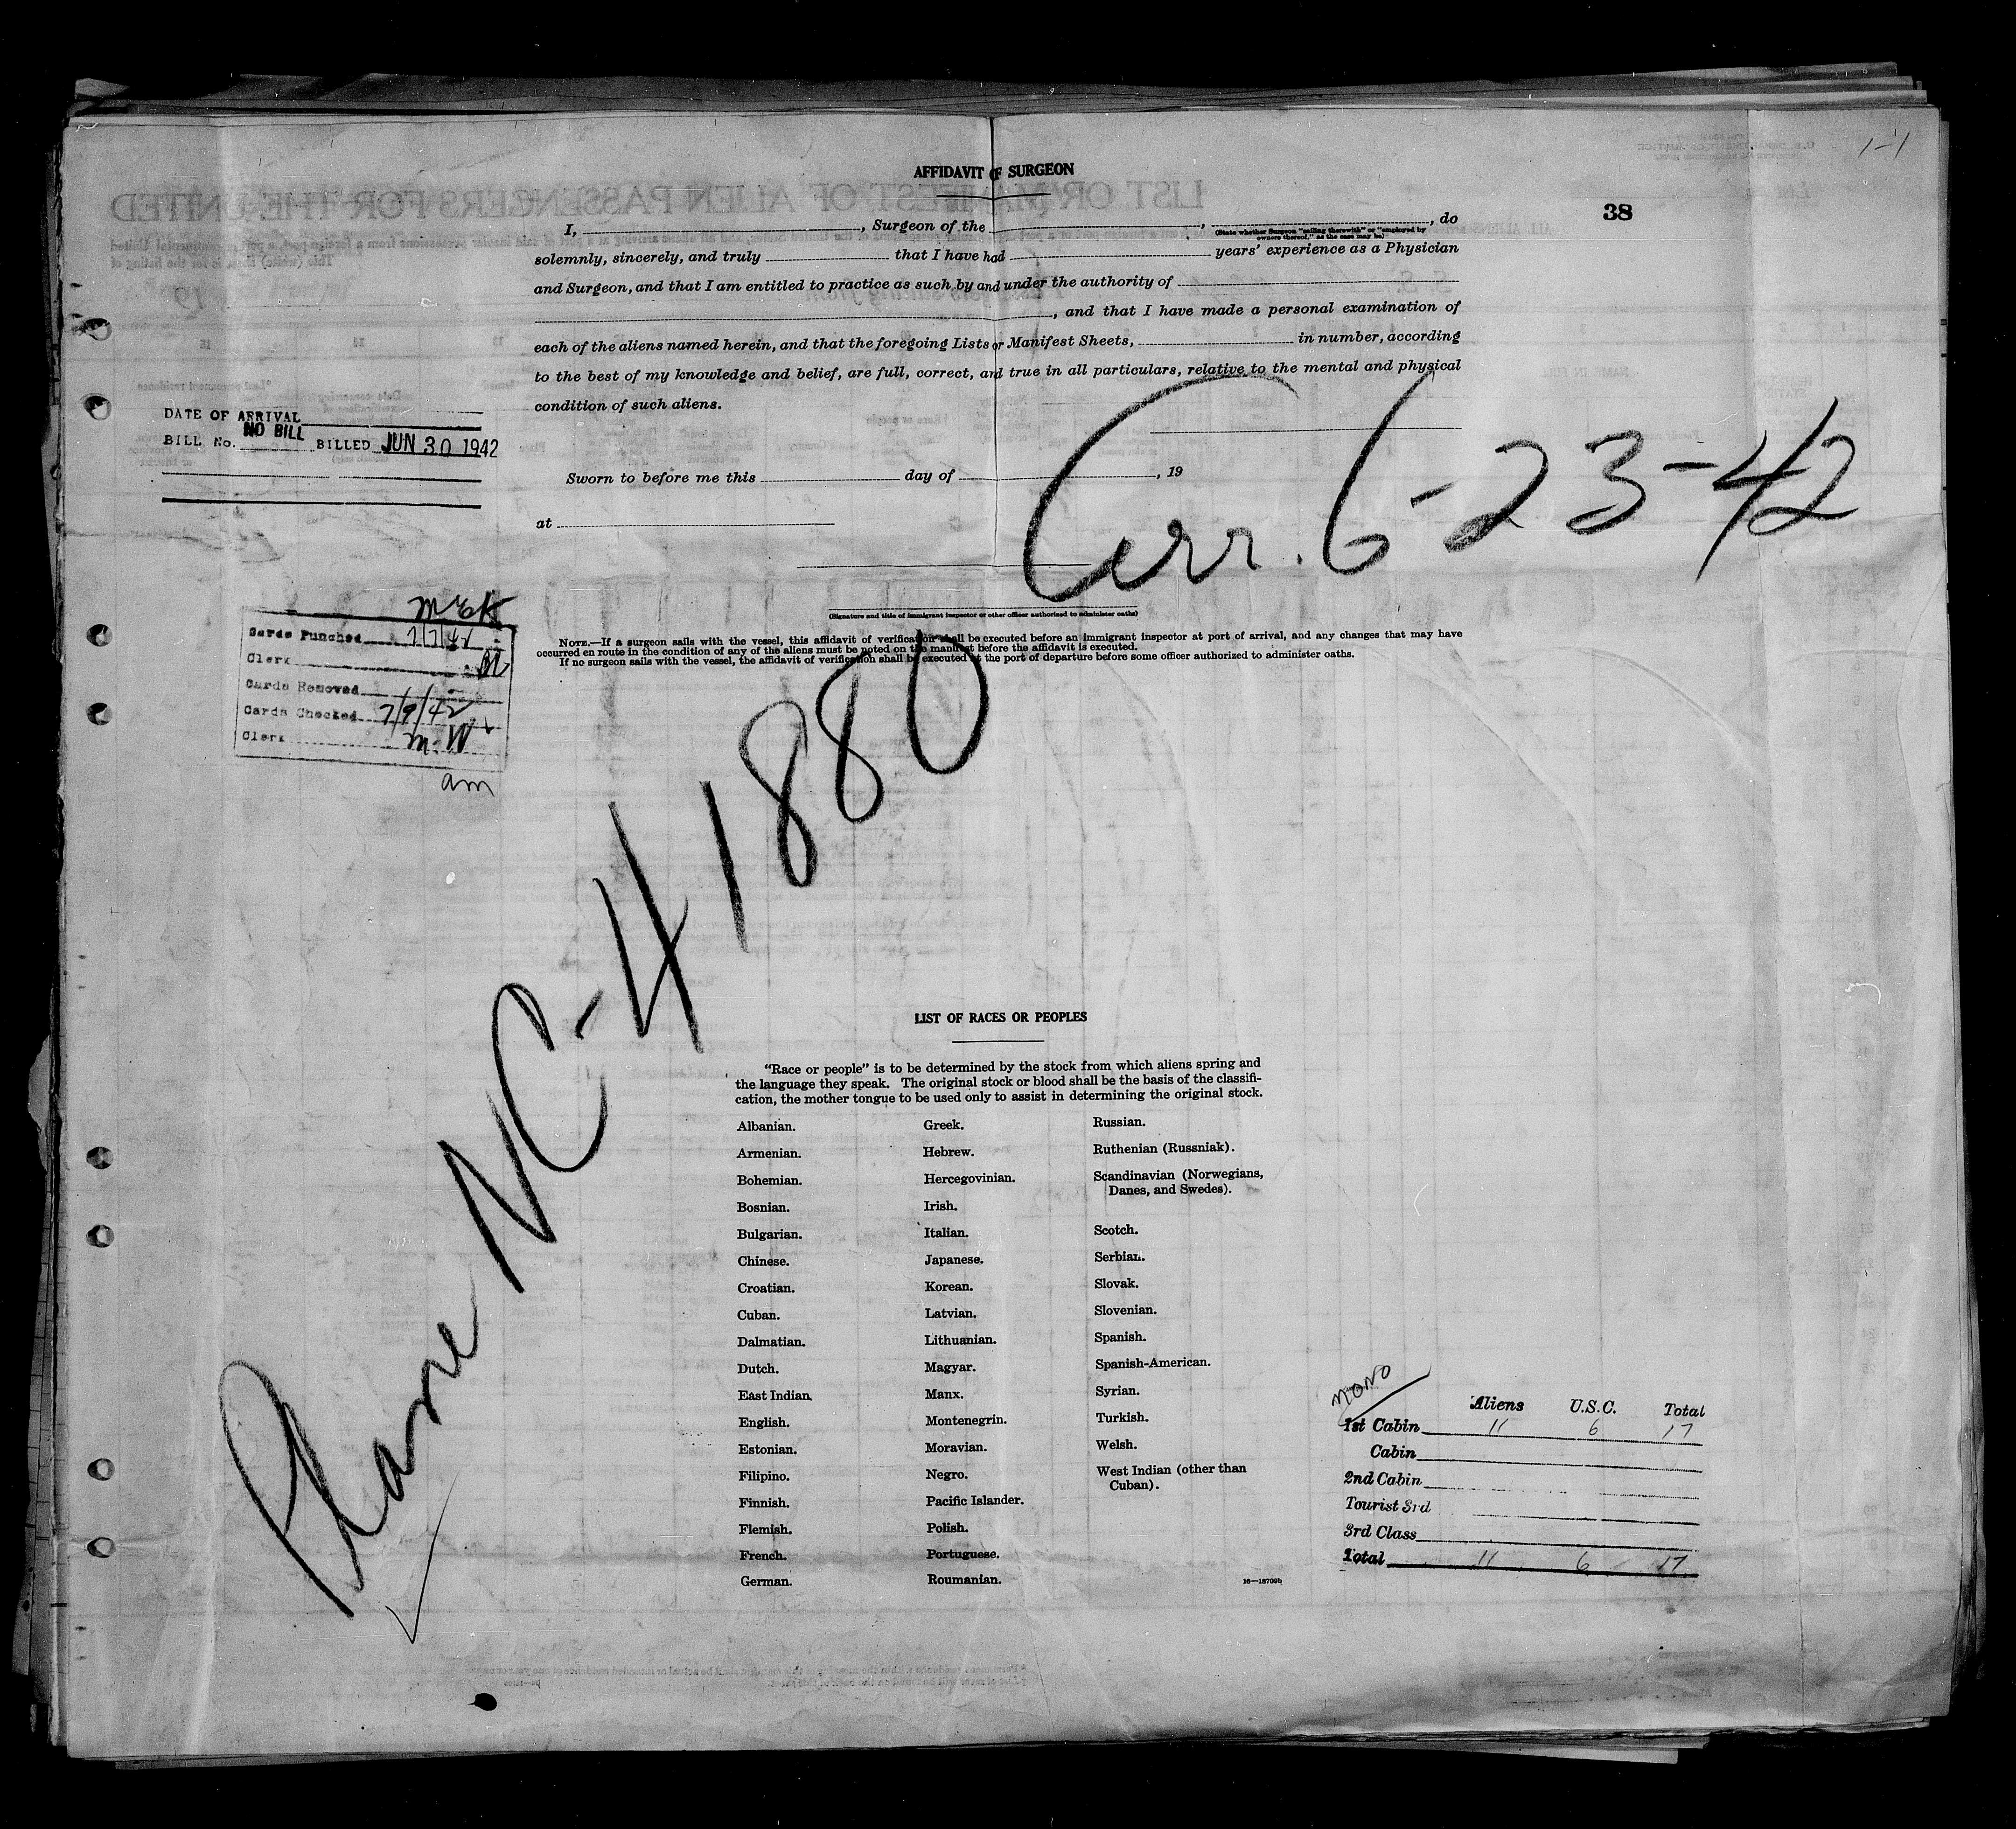 1-1
AFFIDAVIT OF SURGEON
38
I, , Surgeon of the , , do
(State whether Surgeon "sailing therewith" or "employed by
owners thereof," as the case may be)
solemnly, sincerely, and truly that I have had years' experience as a Physician
and Surgeon, and that I am entitled to practice as such by and under the authority of
, and that I have made a personal examination of
each of the aliens named herein, and that the foregoing Lists or Manifest Sheets, in number, according
to the best of my knowledge and belief, are full, correct, and true in all particulars, relative to the mental and physical
condition of such aliens.
DATE OF ARRIVAL
BILL No. NO BILL BILLED JUN 30 1942
Arr. 6-23-42
Sworn to before me this day of , 19
at
(Signature and title of immigrant inspector or other officer authorized to administer oaths)
NOTE.—If a surgeon sails with the vessel, this affidavit of verification shall be executed before an immigrant inspector at port of arrival, and any changes that may have
occurred en route in the condition of any of the aliens must be noted on the manifest before the affidavit is executed.
If no surgeon sails with the vessel, the affidavit of verification shall be executed at the port of departure before some officer authorized to administer oaths.
Cards Punched 7/7/42
Clerk
Cards Removed
Cards Checked 7/9/42
Clerk m.W
am
Plane NC-41880
LIST OF RACES OR PEOPLES
"Race or people" is to be determined by the stock from which aliens spring and
the language they speak. The original stock or blood shall be the basis of the classifi-
cation, the mother tongue to be used only to assist in determining the original stock.
Albanian.
Armenian.
Bohemian.
Bosnian.
Bulgarian.
Chinese.
Croatian.
Cuban.
Dalmatian.
Dutch.
East Indian.
English.
Estonian.
Filipino.
Finnish.
Flemish.
French.
German.
Greek.
Hebrew.
Hercegovinian.
Irish.
Italian.
Japanese.
Korean.
Latvian.
Lithuanian.
Magyar.
Manx.
Montenegrin.
Moravian.
Negro.
Pacific Islander.
Polish.
Portuguese.
Roumanian.
Russian.
Ruthenian (Russniak).
Scandinavian (Norwegians,
Danes, and Swedes).
Scotch.
Serbian.
Slovak.
Slovenian.
Spanish.
Spanish-American.
Syrian.
Turkish.
Welsh.
West Indian (other than
Cuban).
16—18709b
Aliens U.S.C. Total
1st Cabin 11 6 17
Cabin
2nd Cabin
Tourist 3rd
3rd Class
Total 11 6 17